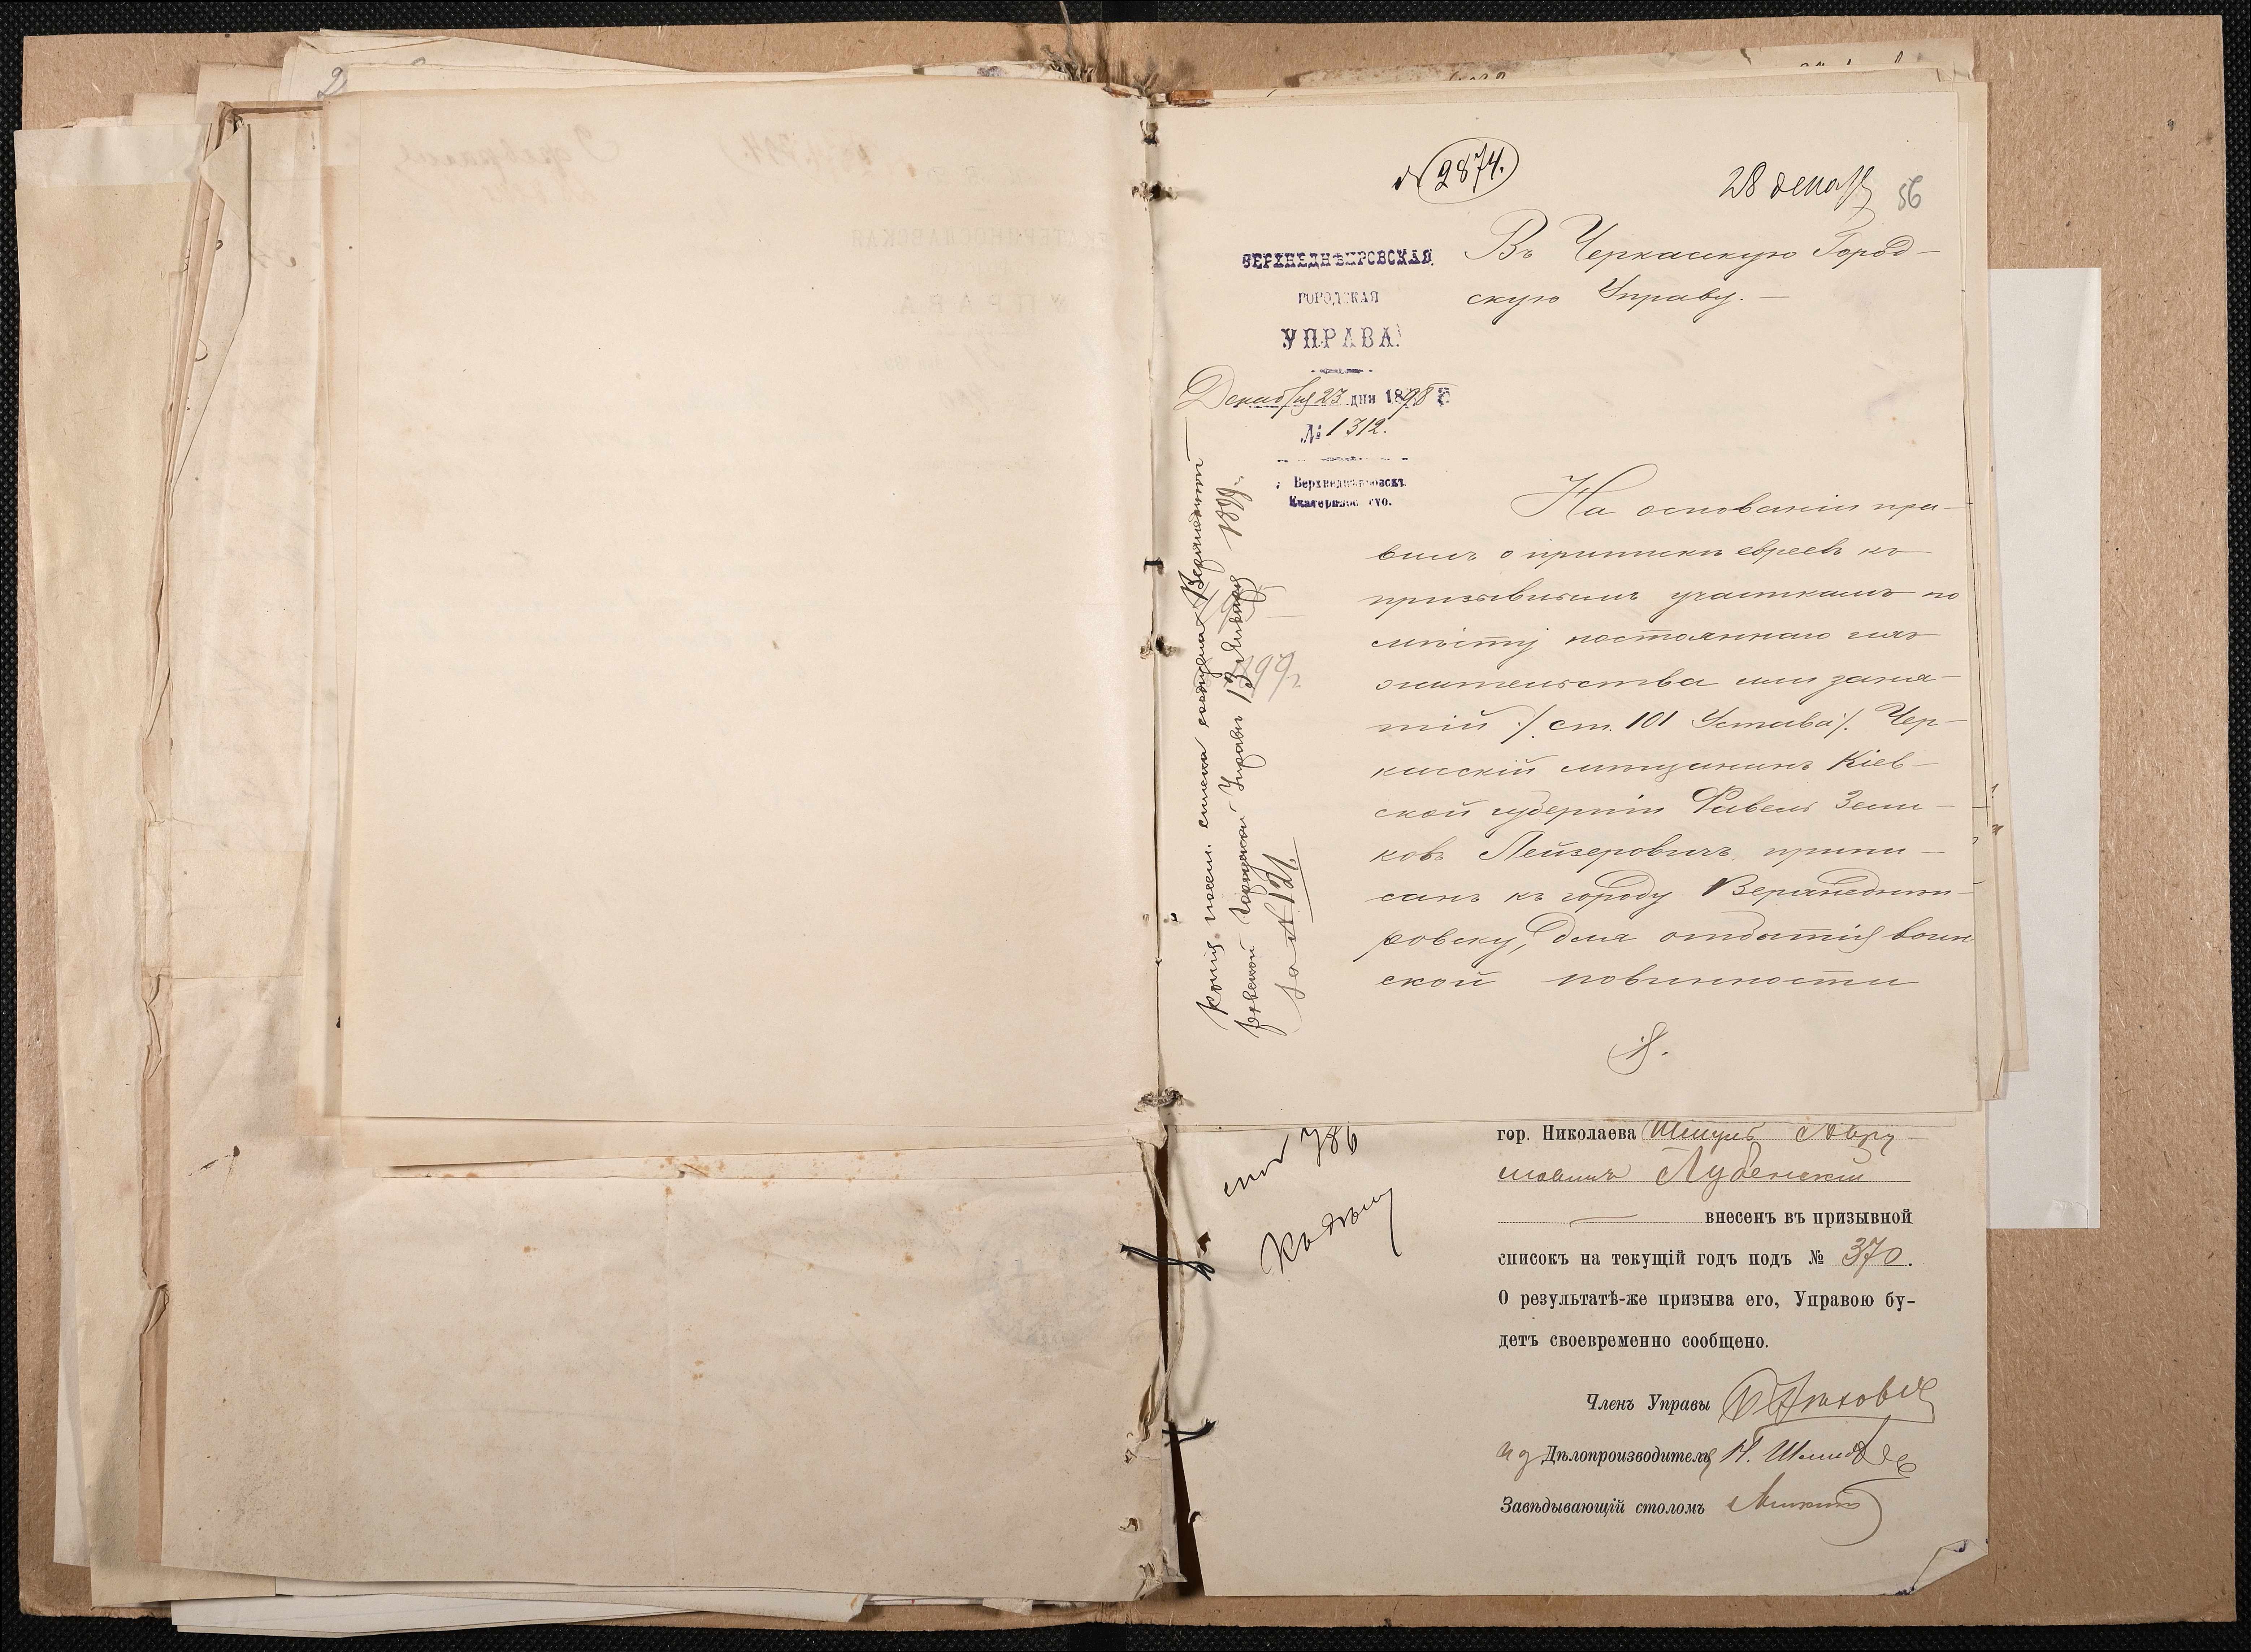 № 2874.
28 декабр
56
ВЕРХНЕДНѢПРОВСКАЯ
ГОРОДСКАЯ
УПРАВА
Декабря 23 дня 1898
№ 1312.
Верхнеднѣпровскъ
Екатеринос
Въ Черкасскую Город-
скую Управу. —
На основаніи пра-
вилъ о припискѣ евреевъ къ
призывнымъ участкамъ по
мѣсту постояннаго ихъ
жительства или заня-
тій /. ст. 101 Устава /. Чер-
касскій мѣщанинъ Кіев-
ской губерніи
Лейзеровичъ припи-
санъ къ городу Верхнеднѣп-
ровску, для отбытія воин
ской повинности
Копія посем. списка Верхнеднѣп
ровской Городской Управы 13 Января 1899 г.
за № 121.
99 г.
786
гор. Николаева Шмуль Абру
мовичъ Лубенскій
внесенъ въ призывной
списокъ на текущій годъ подъ № 370.
О результатѣ-же призыва его, Управою бу-
детъ своевременно сообщено.
Членъ Управы
И д Дѣлопроизводителя Н.
Завѣдывающій столомъ